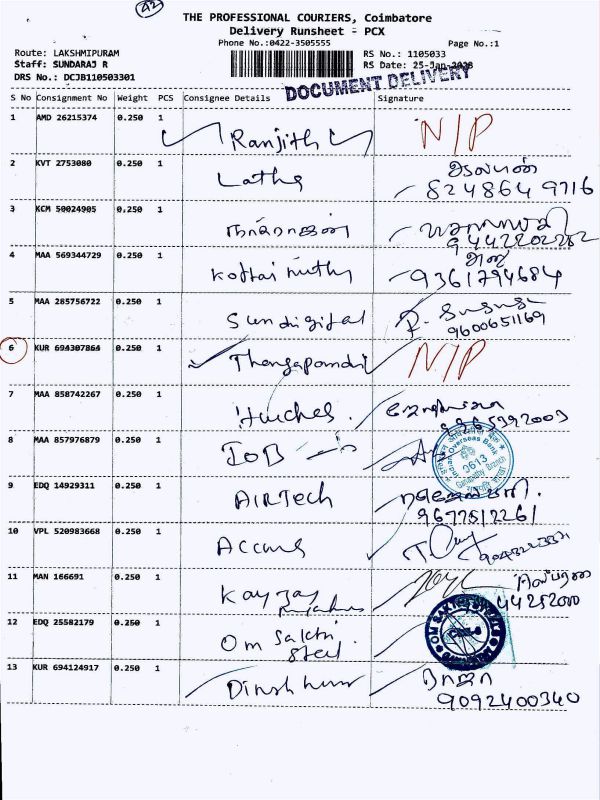 42
THE PROFESSIONAL COURIERS, Coimbatore
Delivery Runsheet - PCX
Phone No.:0422-3505555
Page No.:1
Route: LAKSHMIPURAM
RS No.: 1105033
Staff: SUNDARAJ R
RS Date: 25-Jan-2028
DRS No.: DCJB110503301
DOCUMENT DELIVERY
S No Consignment No Weight PCS Consignee Details Signature
1 AMD 26215374 0.250 1 Ranjith N/P
2 KVT 2753080 0.250 1 Latha
8248649716
3 KCM 50024905 0.250 1
4 MAA 569344729 0.250 1 Kottai muthu
9361794684
5 MAA 285756722 0.250 1 Sundigital
9600651169
6 KUR 694307864 0.250 1 Thangapandi N/P
7 MAA 858742267 0.250 1
8 MAA 857976879 0.250 1 IOB
Indian Overseas Bank
2613
Ganapathy Branch
9 EDQ 14929311 0.250 1 AIRTech
9677512261
10 VPL 520983668 0.250 1
11 MAN 166691 0.250 1 Kay Jay
44252000
12 EDQ 25582179 0.250 1 Om Sakthi
Steel
OM SAKTHI STEELS
13 KUR 694124917 0.250 1 Dinesh kumar ராஜா
9092400340